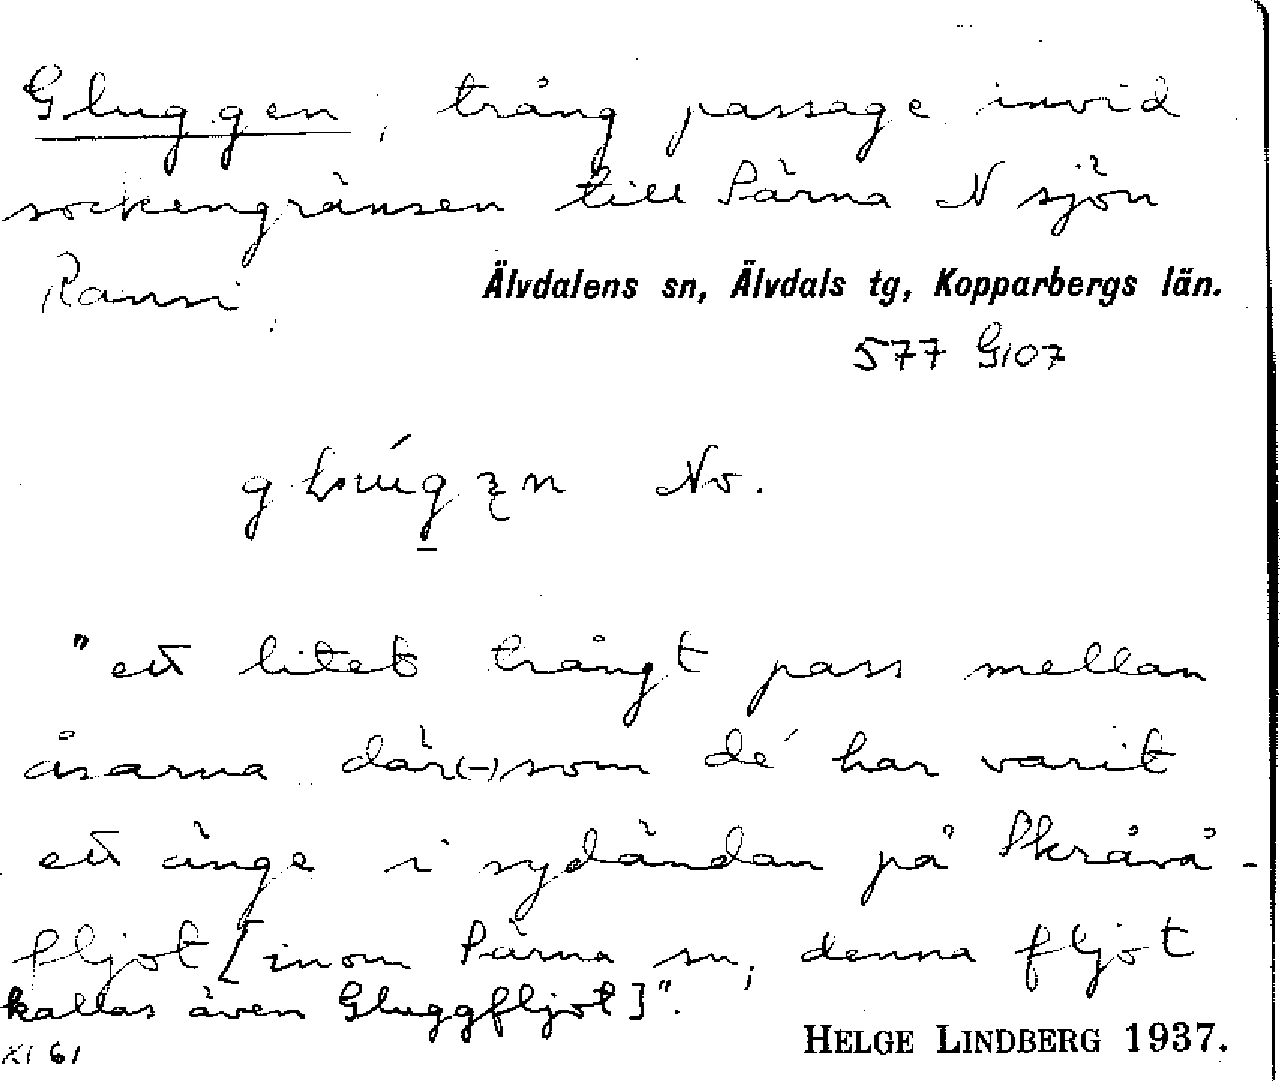 Gluggen, trång passage invid
sockengränsen till Särna N sjön
Ransi.
Älvdalens sn, Älvdals tg, Kopparbergs län.
577 G107
No.
"ett litet trångt pass mellan
åsarna där(-)som dé har varit
ett änge i sydändan på Skråvå-
fljot [inom Särna sn, denna fljot
kallas även Gluggfljot]".
HELGE LINDBERG 1937.
XI 61